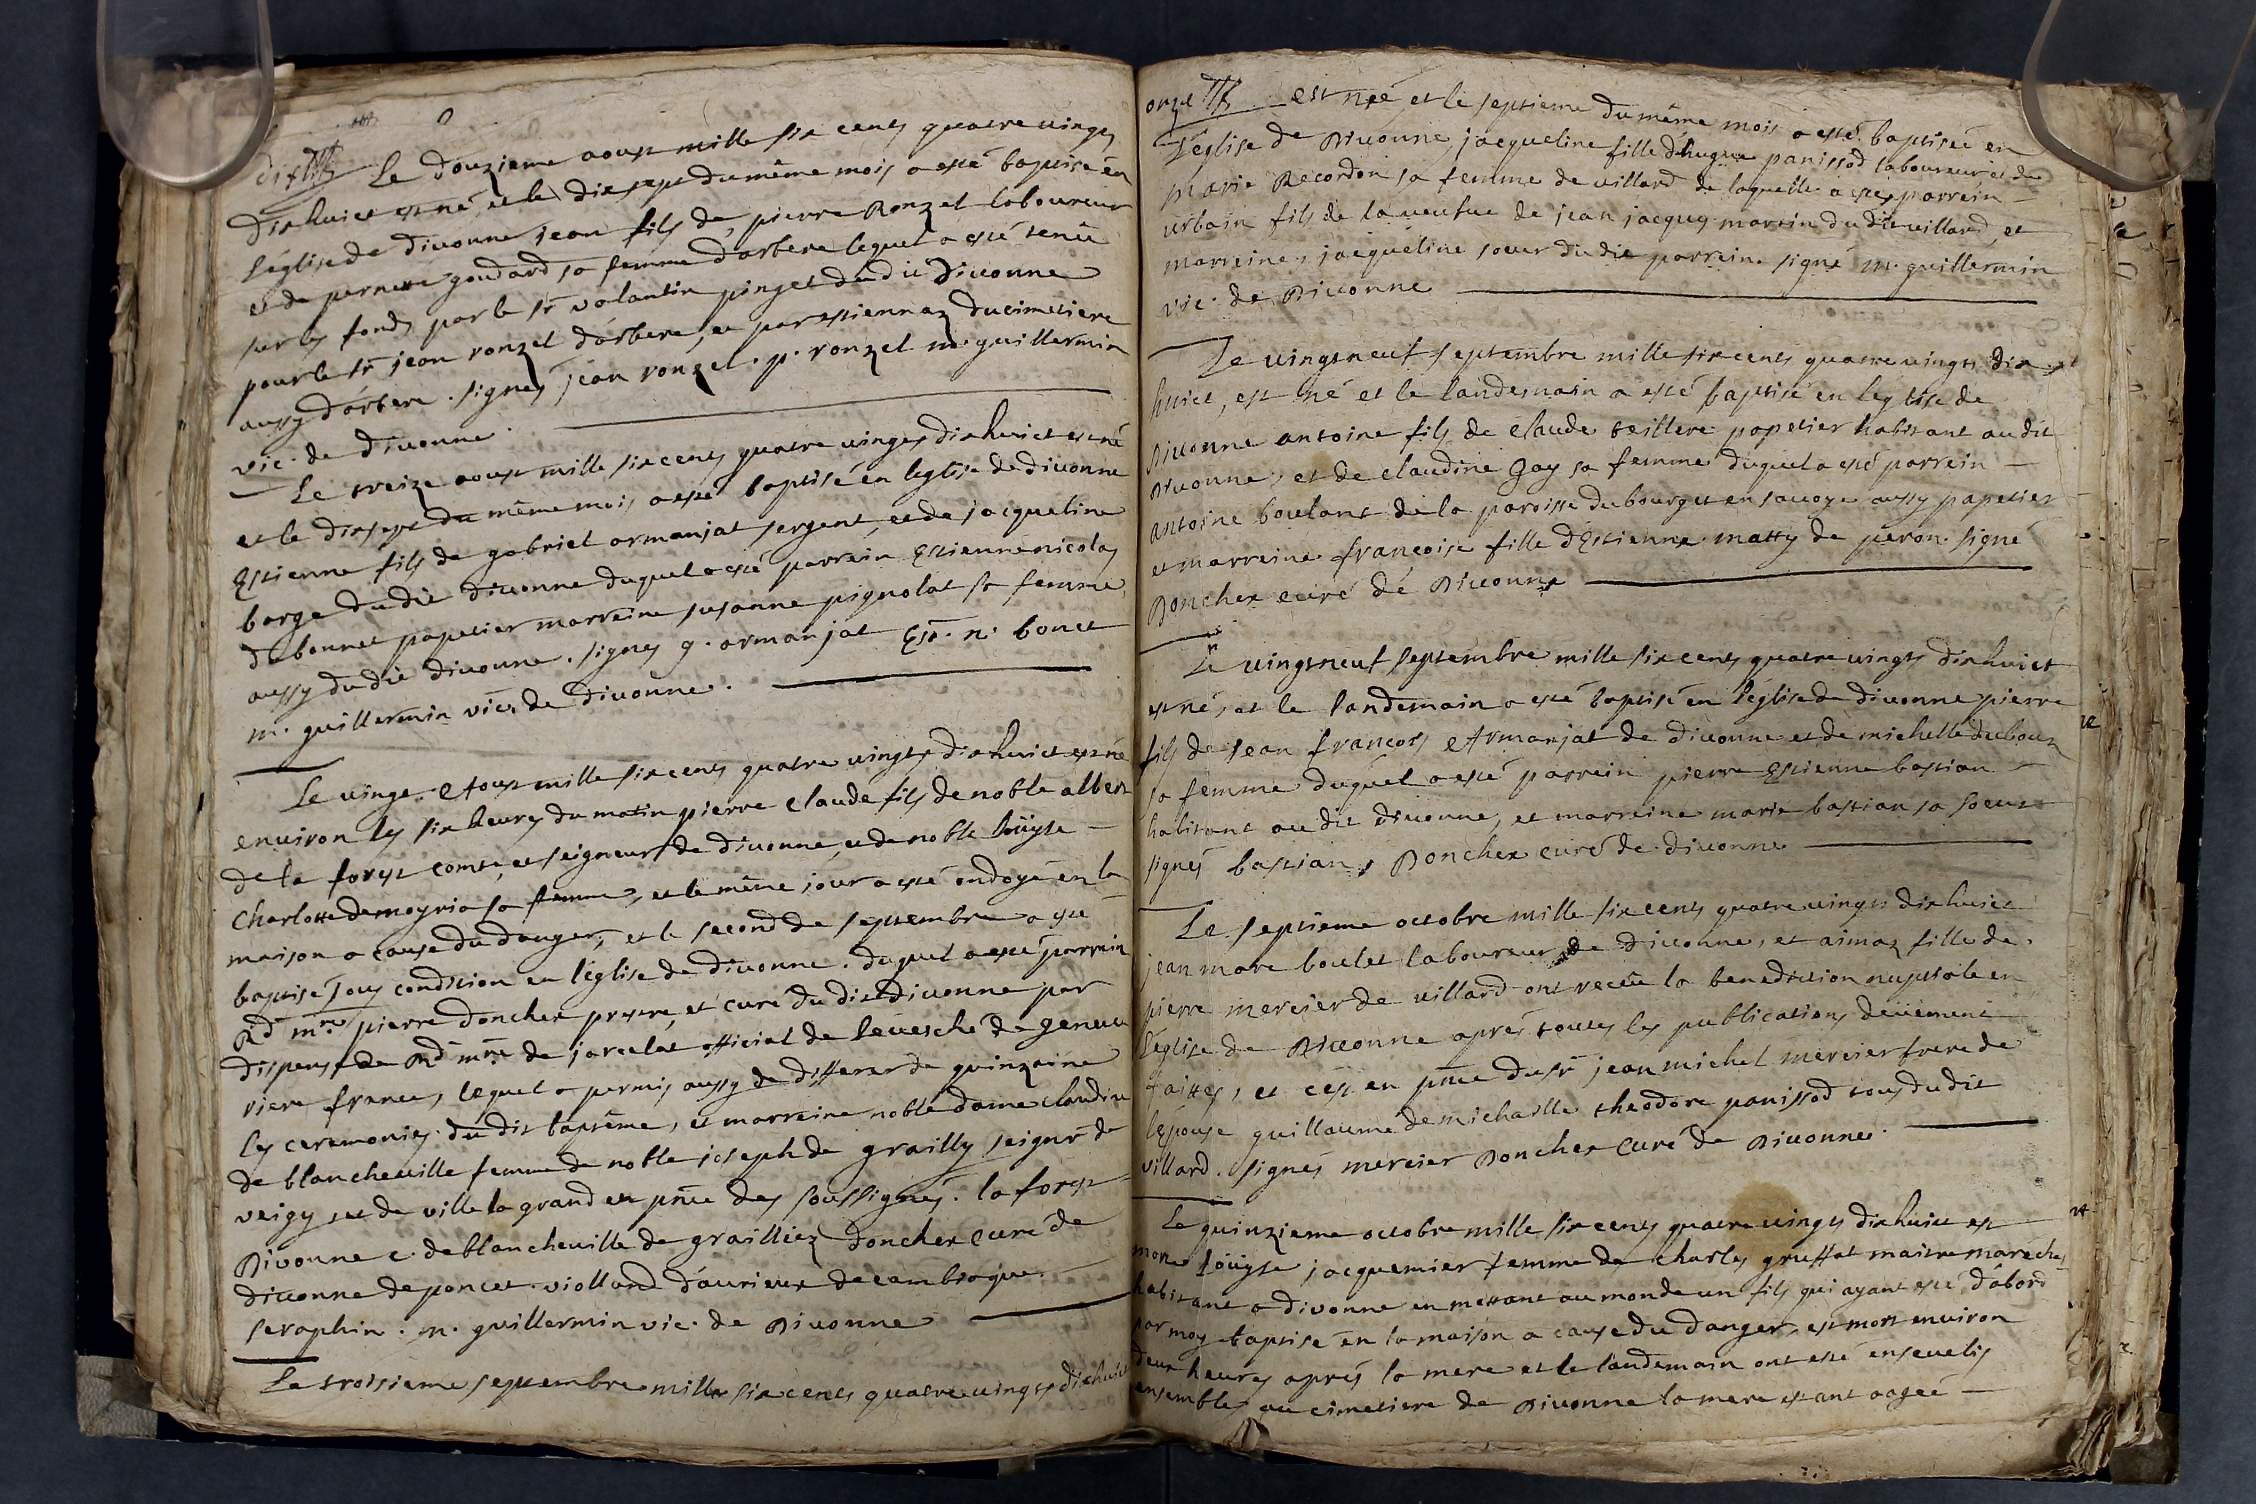 dix
Le douzieme aoust mille six cents quatre vingts
dixhuict est né, et le dixsept du même mois a esté baptisé en
l'église de diuonne jean fils de pierre Ronzel laboureur
et de pernette goudard sa femme d'arbere lequel a esté tenu
sur les fonds par le sr valantin pinget du dit Diuonne
pour le sr jean ronzel d'arbere, et par estiennaz ducimetiere
aussy d'arbere. signés jean ronzel. p. ronzel m. guillermin
vic. de diuonne.
Le treize aoust mille six cents quatre vingts dixhuict est né
et le dixsept du même mois a esté baptisé en l'eglise de diuonne
Estienne fils de gabriel armanjat sergent, et de jacqueline
barge du dit diuonne duquel a esté parrain Estienne nicolas
de bonnet papetier marraine susanne pignolat sa femme,
aussy du dit diuonne. signés g. armanjat Est. n. bonet
m. guillermin vic. de diuonne.
Le vingt Aoust mille six cents quatre vingts dixhuict est né
environ les six heures du matin pierre claude fils de noble albert
de la forest comte, et seigneur de diuonne, et de noble loüyse
charlotte de moyria sa femme, et le même jour a esté ondoyé en la
maison a cause du danger, et le second de septembre a esté
baptisé sous condition en l'église de diuonne. duquel a esté parrain
Rd mre pierre doncher prestre, et curé du dit diuonne par
dispense de Rd mre de jarcelat official de l'euesché de geneue
riere france, lequel a permis aussy de differer de quinzaine
les ceremonies du dit baptême, et marraine noble dame claudine
de blancheuille femme de noble joseph de grailly seignr de
veigy et de ville la grand en pnce des soussignés. la forest
Divonne c. de blancheuille de grailliez doncher curé de
diuonne de poncet. violland d'aurieux de cambiaque.
seraphin. m. guillermin vic. de Diuonne
Le troisieme septembre mille six cents quatre vingts dixhuict
onze est née et le septieme du même mois a esté baptisée en
l'église de Diuonne jacqueline fille d'hugue panissod laboureur et de
marie Recordon sa femme de villard de laquelle a esté parrein
urbain fils de la veufue de jean jacques martin du dit villard, et
marreine, jacquéline soeur du dit parrein. signé m. guillermin
vic. de Diuonne
Le vingtneuf septembre mille six cents quatre vingts dix
huict, est né et le landemain a esté baptisé en l'eglise de
Diuonne antoine fils de claude teillere papetier habitant au dit
Diuonne, et de claudine Gay sa femme duquel a esté parrein
antoine boulant de la paroisse du bourget en sauoye aussy papetier
et marreine francoise fille d'Estienne matty de peron. signé
Doncher curé de Diuonne
Le vingtneuf septembre mille six cents quatre vingts dixhuict
est né, et le landemain a esté baptisé en l'église de diuonne pierre
fils de jean francois Armanjat de diuonne et de michelle dubouz
sa femme duquel a esté parrein pierre Estienne bastian
habitant au dit diuonne, et marreine marie bastian sa soeur
signés bastian, Doncher curé de diuonne
Le septieme octobre mille six cents quatre vingts dixhuict
jean marc boulet laboureur de diuonne, et aimaz fille de
pierre mercier de villard ont receu la benediction nuptiale en
l'église de Diuonne aprés toutes les publications deüement
faittes, et ce en pnce du sr jean michel mercier frere de
l'épouse guillaume de michaille theodore panissod tous du dit
villard. signés mercier Doncher curé de Diuonne.
Le quinzieme octobre mille six cents quatre vingts dixhuict est
morte loüyse jacquemier femme de charles gruffat maitre marechal
habitant a divonne en mettant au monde un fils qui ayant esté d'abord
par moy baptisé en la maison a cause du danger, est mort environ
deux heures aprés la mere et le landemain ont esté enseuelis
ensemble au cimetiere de Diuonne la mere estant aagée